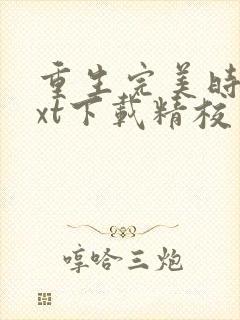 重生完美時
xt下載精校
哼哈三炮